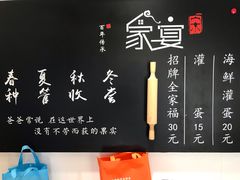 百年传承
家宴
春种 夏管 秋收 冬尝
爸爸常说 在这世界上
没有不劳而获的果实
招牌全家福30元
灌蛋15元
海鲜灌蛋20元